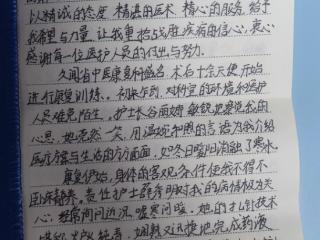 以精诚的态度 精湛的医术 精心的服务,给予
我希望与力量 让我重拾战胜疾病的信心,衷心
感谢每一位医护人员的付出与努力。
久闻省中医康复科盛名 术后十余天便开始
进行康复训练。初来乍到 对科室的环境和医护
人员难免陌生。护士长谷丽娟 敏锐地察觉我的
心思,她莞尔一笑,用温婉和煦的言语为我介绍
医疗方案与生活的方方面面,如冬日暖阳消融了寒冰。
康复伊始,身体的客观条件使我不得不
卧床静养。责任护士 对我的病情极为关
心,经常问问近况,嘘寒问暖,她的扎针技术
娴熟迅捷地完成药液